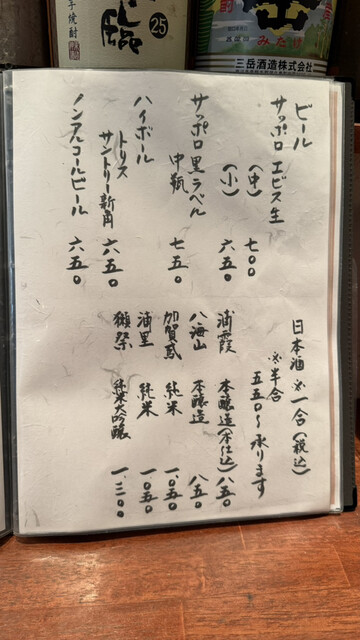 25
三岳酒造株式会社
ビール
サッポロ エビス生
(中) 七〇〇
(小) 六五〇
サッポロ黒ラベル
中瓶 七五〇
ハイボール
トリス
サントリー新角 六五〇
ノンアルコールビール 六五〇
日本酒 ※一合(税込)
※半合
五五〇〜承ります
浦霞 本醸造(本仕込) 八五〇
八海山 本醸造 八五〇
加賀鳶 純米 一、〇五〇
浦里 純米 一、〇五〇
獺祭 純米大吟醸 一、三〇〇